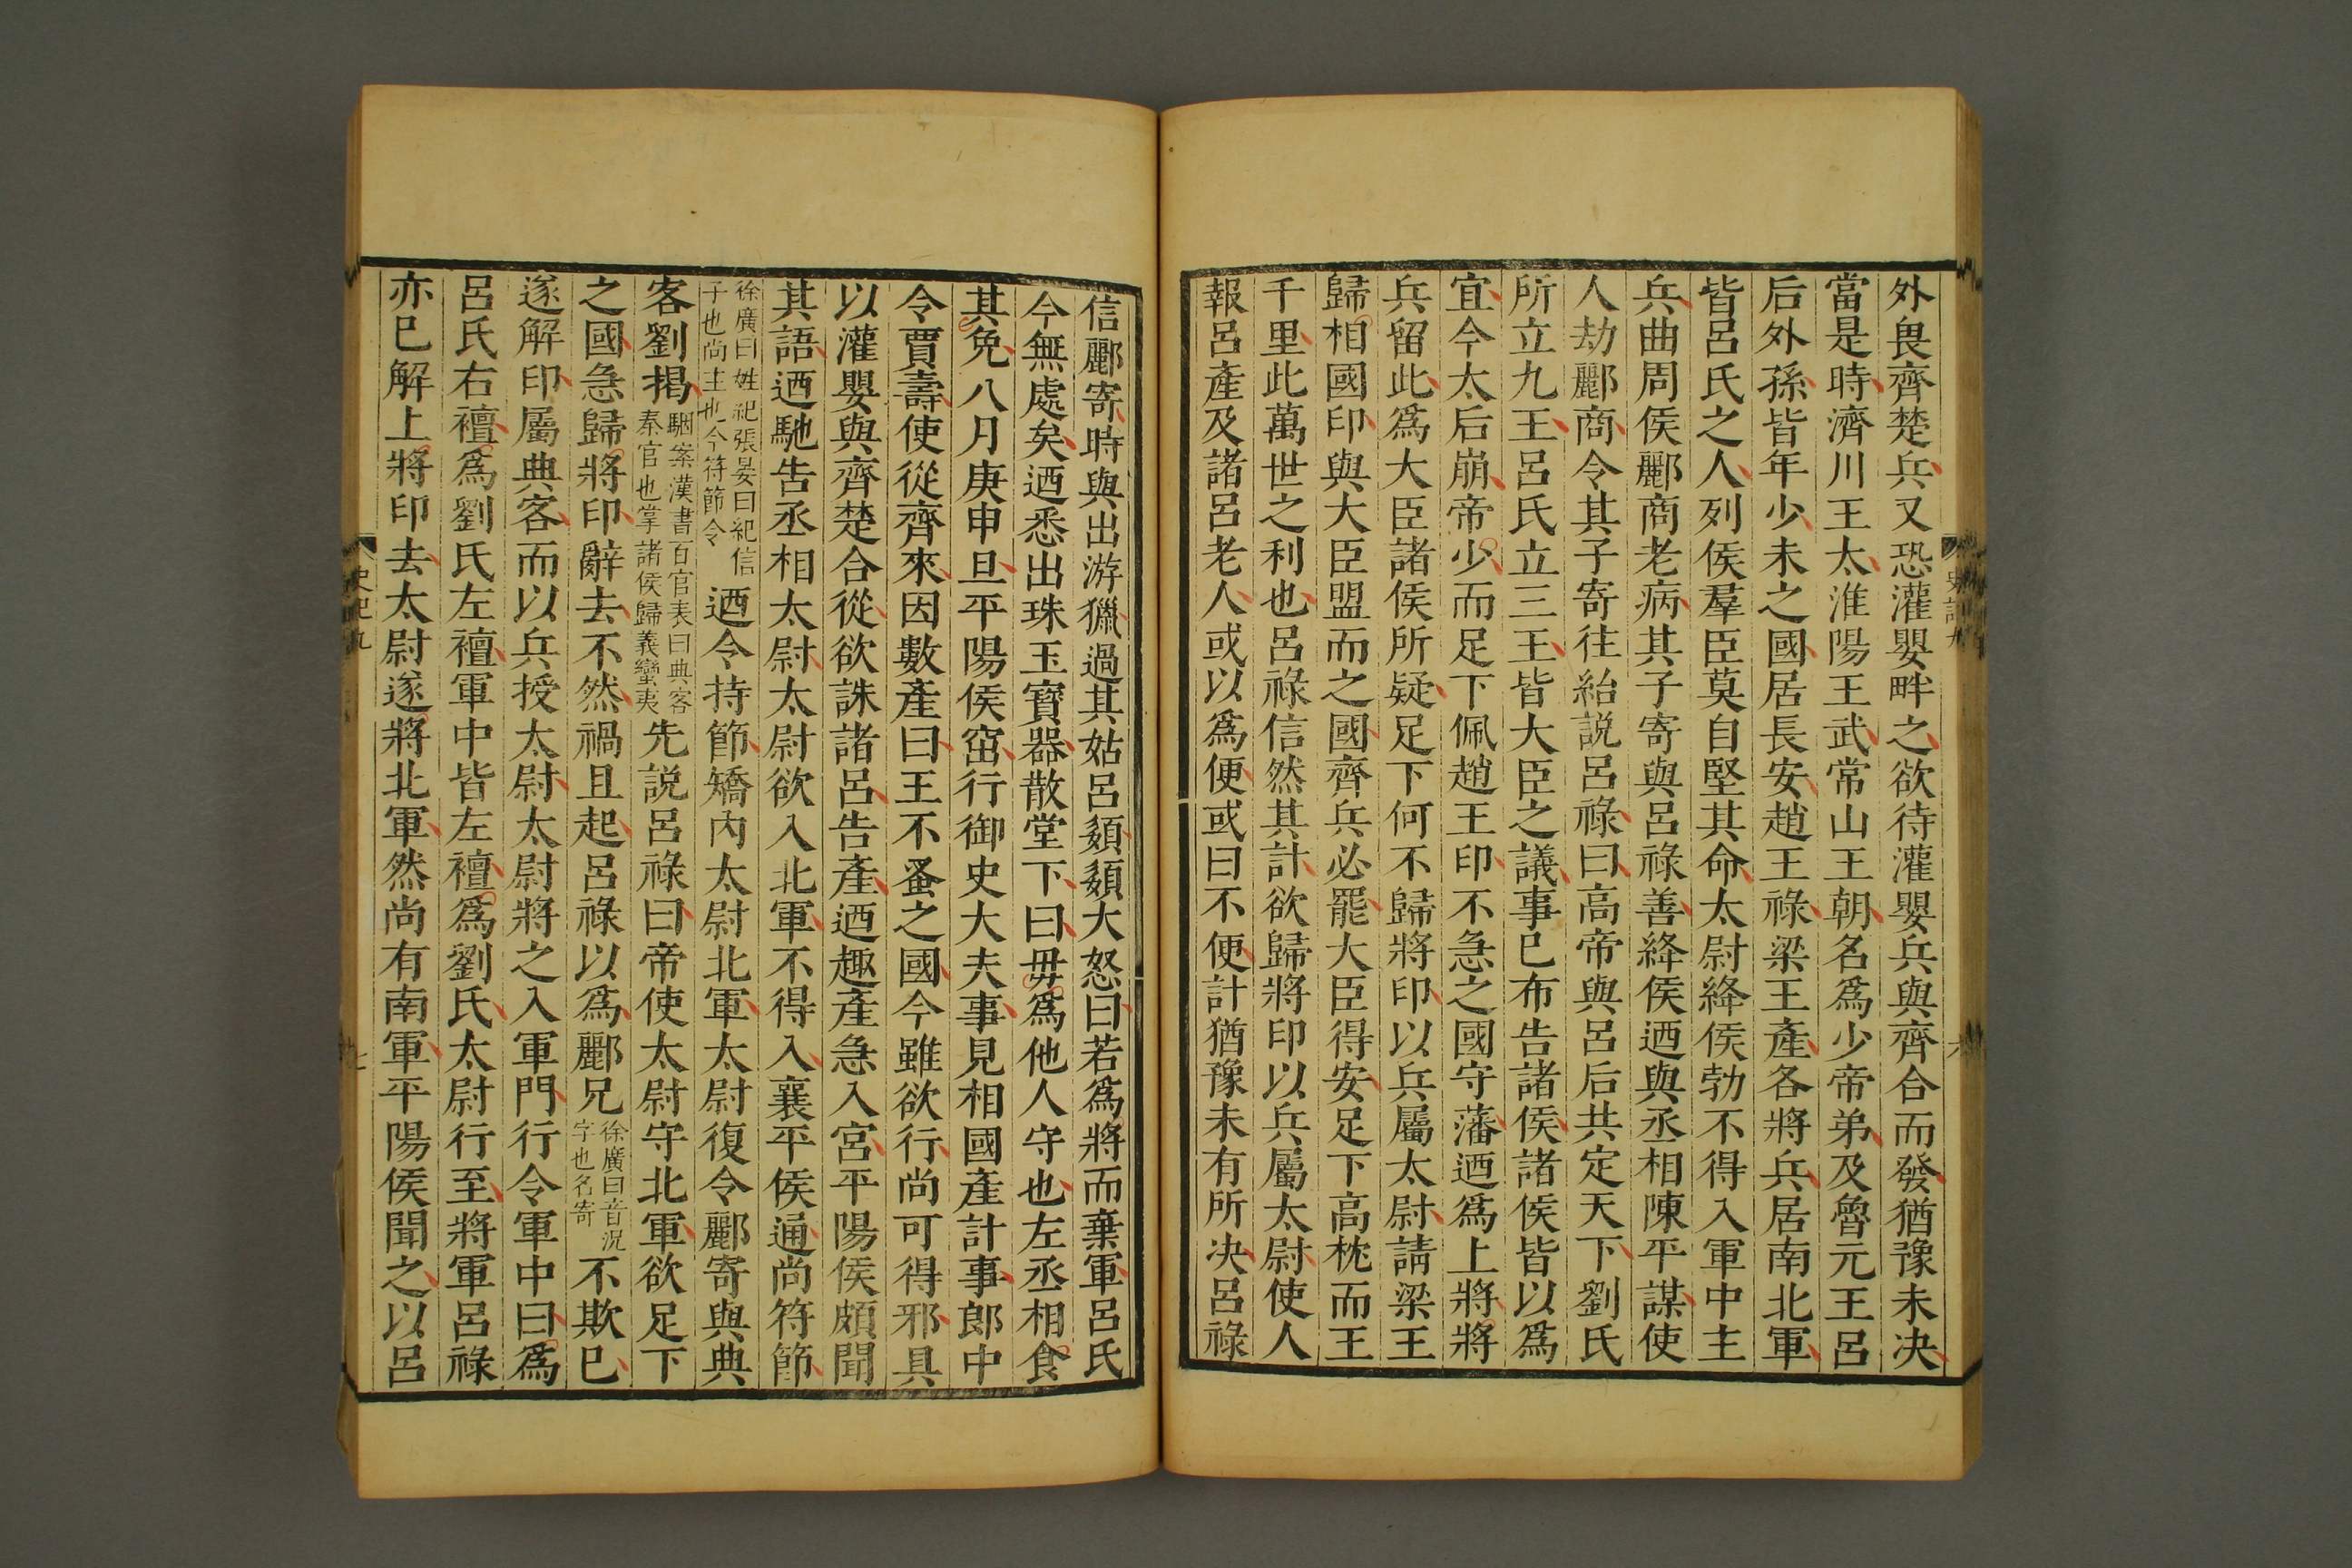 外畏齊楚兵又恐灌嬰畔之欲待灌嬰兵與齊合而發猶豫未决
當是時濟川王太淮陽王武常山王朝名爲少帝弟及魯元王呂
后外孫皆年少未之國居長安趙王祿梁王產各將兵居南北軍
皆呂氏之人列侯羣臣莫自堅其命太尉絳侯勃不得入軍中主
兵曲周侯酈商老病其子寄與呂祿善絳侯迺與丞相陳平謀使
人劫酈商令其子寄往紿說呂祿曰高帝與呂后共定天下劉氏
所立九王呂氏立三王皆大臣之議事已布告諸侯諸侯皆以爲
宜今太后崩帝少而足下佩趙王印不急之國守藩迺爲上將將
兵留此爲大臣諸侯所疑足下何不歸將印以兵屬太尉請梁王
歸相國印與大臣盟而之國齊兵必罷大臣得安足下高枕而王
千里此萬世之利也呂祿信然其計欲歸將印以兵屬太尉使人
報呂產及諸呂老人或以爲便或曰不便計猶豫未有所決呂祿
史記九
六
信酈寄時與出游獵過其姑呂嬃嬃大怒曰若爲將而棄軍呂氏
今無處矣迺悉出珠玉寶器散堂下曰毋爲他人守也左丞相食
其免八月庚申旦平陽侯窋行御史大夫事見相國產計事郎中
令賈壽使從齊來因數產曰王不蚤之國今雖欲行尚可得邪具
以灌嬰與齊楚合從欲誅諸呂告產迺趣產急入宮平陽侯頗聞
其語迺馳告丞相太尉太尉欲入北軍不得入襄平侯通尚符節
徐廣曰姓紀張晏曰紀信
子也尚主也今符節令
迺令持節矯內太尉北軍太尉復令酈寄與典
客劉揭
駰案漢書百官表曰典客
秦官也掌諸侯歸義蠻夷
先說呂祿曰帝使太尉守北軍欲足下
之國急歸將印辭去不然禍且起呂祿以爲酈兄
徐廣曰音況
字也名寄
不欺已
遂解印屬典客而以兵授太尉太尉將之入軍門行令軍中曰爲
呂氏右襢爲劉氏左襢軍中皆左襢爲劉氏太尉行至將軍呂祿
亦已解上將印去太尉遂將北軍然尚有南軍平陽侯聞之以呂
史記九
七